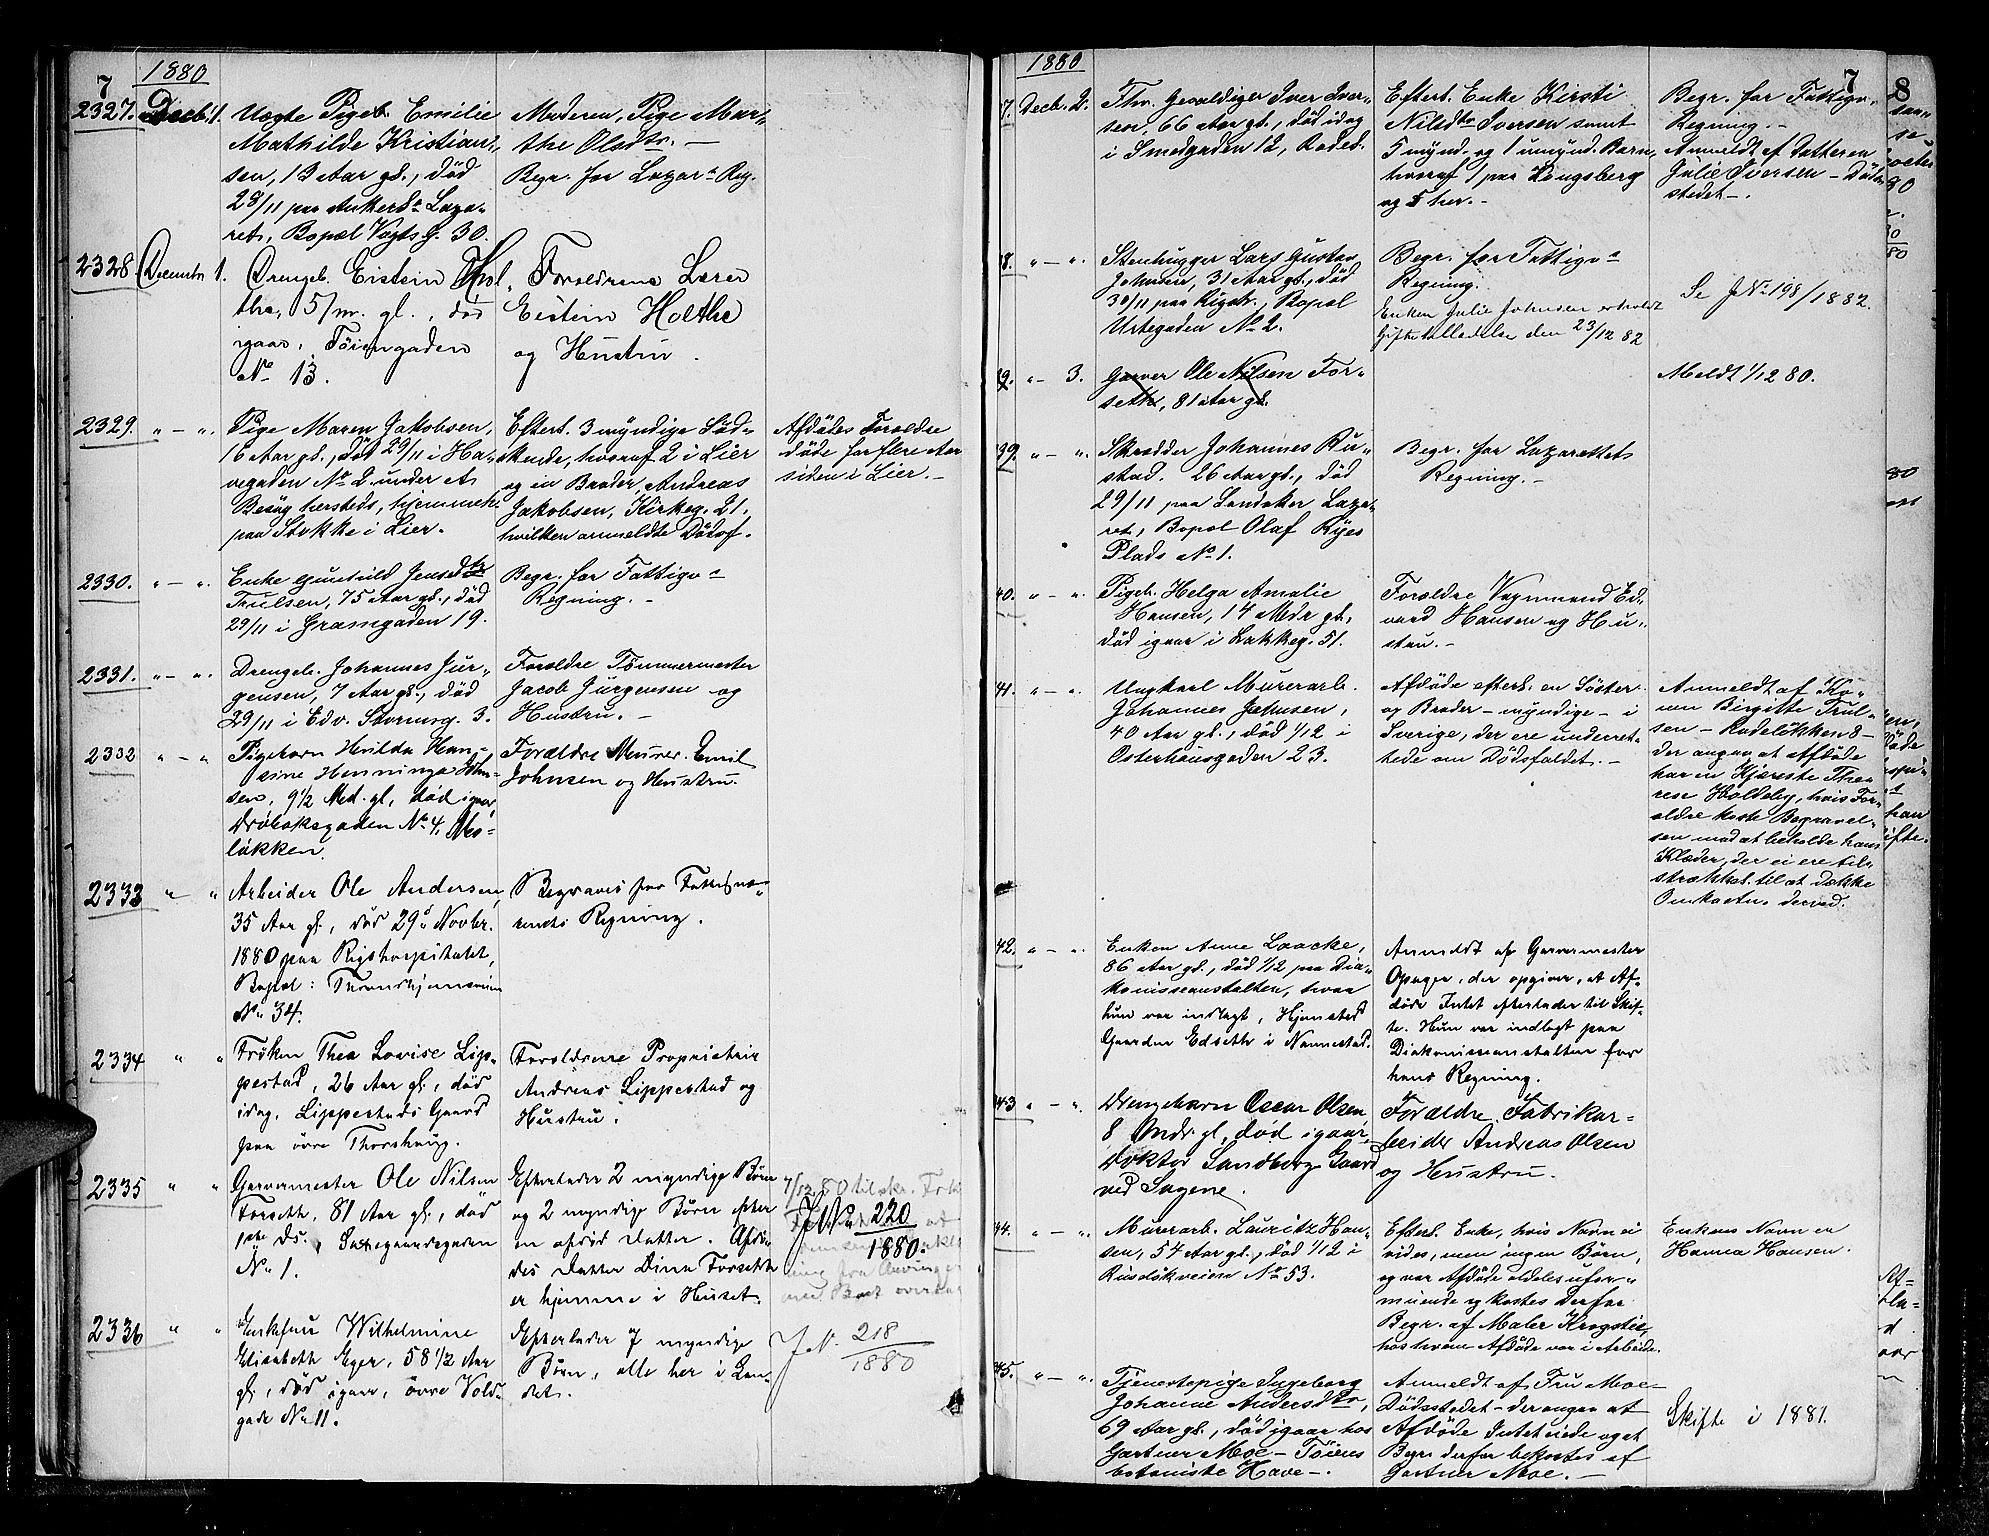 7
1880
2327. Decb. 1. Uægte Pigeb. Emilie
Mathilde Kristian-
sen, 13 Aar gl., död
28/11 paa Ankerlk. Laza-
ret, Bopæl Vogts G. 30.
Moderen, Pige Mar-
the Olsdtr. —
Begr. for Lazar. Reg.
2328. Decembr 1. Drengeb. Eistein Hol-
the, 5/mr. gl., död
igaar, Töiengaden
No 13.
Forældrene Lærer
Eistein Holthe
og Hustru.
2329. " — ". Pige Maren Jakobsen,
16 Aar gl., död 29/11 i Ha-
vegaden No 2 under et
Besøg hersteds, hjemmeh.
paa Stokke i Lier.
Eftert. 3 myndige Sød-
skende, hvoraf 2 i Lier
og en Broder, Andreas
Jakobsen, Kirkeg. 21.
hvilken anmeldte Dödsf.
Afdödes Forældre
döde for flere Aar
siden i Lier. —
2330. " — ". Enke Gunhild Jensdtr
Trulsen, 75 Aar gl., död
29/11 i Grønsgaden 19.
Begr. for Fattigv.
Regning. —
2331. " — ". Drengeb. Johannes Jür-
gensen, 7 Aar gl., död
29/11 i Edv. Stormsg. 3.
Forældre Tömmermester
Jacob Jürgensen og
Hustru. —
2332 " — " Pigebarn Hvilda Han-
sine Henninga John-
sen, 9 1/2 Md. gl, död igaar
Dröbaksgaden No 4,
lökken.
Forældre Murer. Emil
Johnsen og Hustru.
2333 " " Arbeider Ole Andersen,
35 Aar gl., död 29d Novbr.
1880 paa Rigshospitalet,
Bopæl: Throndhjemsveien
No 34.
Begraves for Fattigvæ-
senets Regning.
2334 " " Fröken Thea Lovise Lip-
pestad, 26 Aar gl., död
idag, Lippestads Gaard
paa övre Thorshaug.
Forældrene Proprietair
Andreas Lippestad og
Hustru.
2335 " " Garvermester Ole Nilsen
Forseth, 81 Aar gl., död
1ste Ds.,
No 1.
Efterlader 2 myndige Börn
og 2 myndige Börn efter
en afdöd Datter. Afdö-
des Datter Dina Forseth
er hjemme i Huset.
JNo 220
1880.
2336 " " Enkefru Wilhelmine
Elisabeth Eger, 58 1/2 Aar
gl., död igaar, övre Vold-
gade No 11.
Efterlader 7 myndige
Börn, alle her i Lan-
det.
J.N. 218
1880
1880
7
8
7. Decb. 2. Fhv. Gevaldiger Iver Iver-
sen, 66 Aar gl., död idag
i Smedgaden 12, Rodel.
Eftert. Enke Kirsti
Nilsdtr Iversen samt
5 mynd. og 1 umynd. Barn,
hvoraf 1 paa Kongsberg
og 5 her. —
Begr. for Fattigv.
Regning. —
Anmeldt af Datteren
Julie Iversen — Döds-
stedet —.
8. " — ". Stenhugger Lars Gustav
Johnsen, 31 Aar gl., död
30/11 paa Rigsh., Bopæl
Urtegaden No 2.
Begr. for Fattigv.
Regning.
Enken Julie Johnsen erholdt
Giftetilladelse den 23/12 82
Se JNo 198/1882.
39. " — 3. Garver Ole Nilsen For-
seth, 81 Aar gl.
Meldt 1/12 80.
39. " — ". Skrædder Johannes Ru-
stad. 26 Aar gl., död
29/11 paa Sandaker Laza-
ret, Bopæl Olaf Ryes
Plads No 1.
Begr. for Lazarettets
Regning. —
40. " — ". Pigeb. Helga Amalie
Hansen, 14 Mdr gl.,
död igaar i Lakkeg. 51.
Forældre Vognmand Ed-
vard Hansen og Hu-
stru. —
41. " — ". Ungkarl Murerarb.
Johannes Johnsen,
40 Aar gl., död 1/12 i
Osterhausgaden 23.
Afdöde efterl. en Söster
og Broder — myndige — i
Sverige, der ere underret-
tede om Dödsfaldet. —
Anmeldt af Ko-
nen Birgitte Trul-
sen — Rodelökken 8 —
der angav at Afdöde
har en Kjæreste The-
rese Holdeby, hvis For-
ældre koste Begravel-
sen mod at beholde hans
Klæder, der ei ere til-
strækkel. til at dække
Omkostn. derved.
42. " — ". Enken Anne Laacke,
86 Aar gl., död 1/12 paa Dia-
konisseanstalten, hvor
hun var indlagt, Hjemsted
Gaarden Edseth i Nannestad.
Anmeldt af Garvermester
Opager, der opgiver, at Af-
döde Intet efterlader til Skif-
te. Hun var indlagt paa
Diakonisseanstalten for
hans Regning.
43 " — ". Drengebarn Oscar Olsen
8 Mdr. gl, död igaar,
Doktor Sandberg Gaard
ved Sagene.
Forældre Fabrikar-
beider Andreas Olsen
og Hustru.
44. " — ". Murerarb. Lauritz Han-
sen, 54 Aar gl., död 1/12 i
Ruselökveien No 53.
Efterl. Enke, hvis Navn ei
vides, men ingen Börn,
og var Afdöde aldeles ufor-
muende og kostes derfor
Begr. af Maler Krogstie,
hos hvem Afdöde var i Arbeide.
Enkens Navn er
Hanna Hansen.
45. " — ". Tjenestepige Ingeborg
Johanne Andersdtr,
69 Aar gl., död igaar hos
Gartner Moe — Töiens
botaniske Have —.
Anmeldt af Fru Moe —
Dödsstedet — der angav at
Afdöde Intet eiede og at
Begr. derfor bekostes af
Gartner Moe. —
Skifte i 1881.